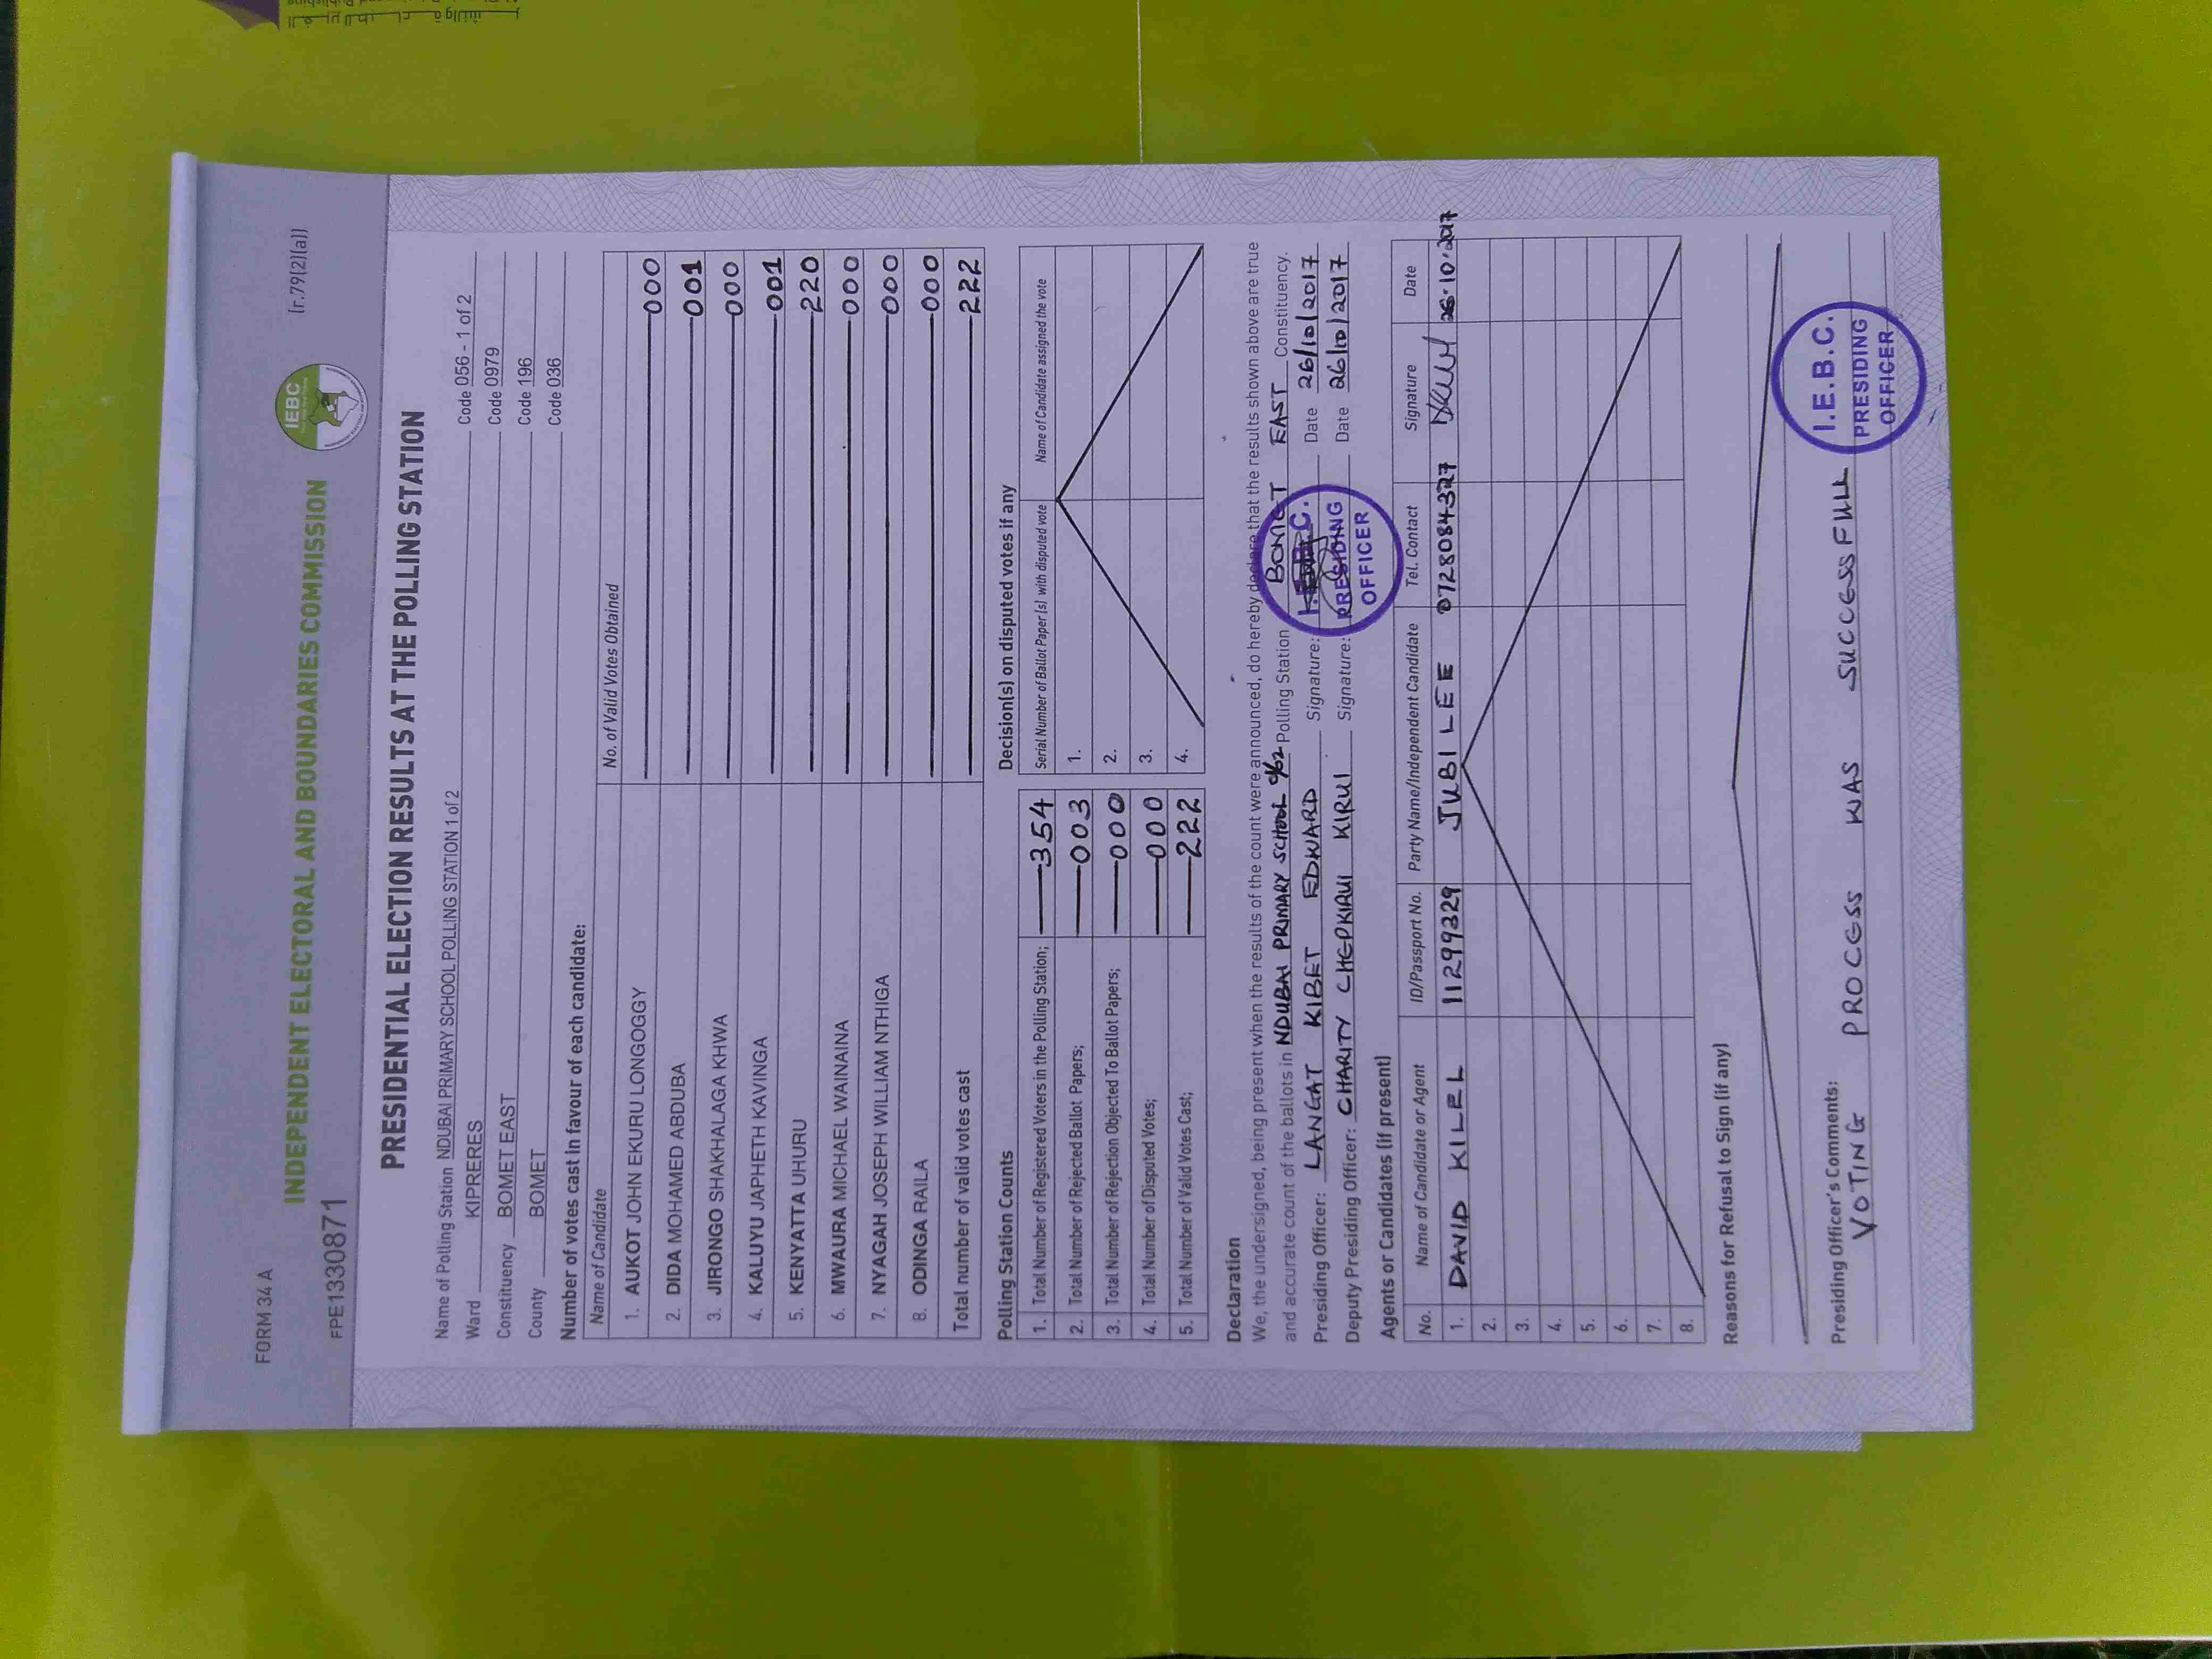 FORM 34 A
(r.79(2)(a))
INDEPENDENT ELECTORAL AND BOUNDARIES COMMISSION
IEBC
FPE1330871
PRESIDENTIAL ELECTION RESULTS AT THE POLLING STATION
Name of Polling Station NDUBAI PRIMARY SCHOOL POLLING STATION 1 of 2 Code 056 - 1 of 2
Ward KIPRERES Code 0979
Constituency BOMET EAST Code 196
County BOMET Code 036
Number of votes cast in favour of each candidate:
Name of Candidate No. of Valid Votes Obtained
1. AUKOT JOHN EKURU LONGOGGY 000
2. DIDA MOHAMED ABDUBA 001
3. JIRONGO SHAKHALAGA KHWA 000
4. KALUYU JAPHETH KAVINGA 001
5. KENYATTA UHURU 220
6. MWAURA MICHAEL WAINAINA 000
7. NYAGAH JOSEPH WILLIAM NTHIGA 000
8. ODINGA RAILA 000
Total number of valid votes cast 222
Polling Station Counts
1. Total Number of Registered Voters in the Polling Station; 354
2. Total Number of Rejected Ballot Papers; 003
3. Total Number of Rejection Objected To Ballot Papers; 000
4. Total Number of Disputed Votes; 000
5. Total Number of Valid Votes Cast; 222
Decision(s) on disputed votes if any
Serial Number of Ballot Paper (s) with disputed vote Name of Candidate assigned the vote
1.
2.
3.
4.
Declaration
We, the undersigned, being present when the results of the count were announced, do hereby declare that the results shown above are true
and accurate count of the ballots in NDUBAI PRIMARY SCHOOL Polling Station BOMET EAST Constituency.
Presiding Officer: LANGAT KIBET EDWARD Signature: Date 26/10/2017
Deputy Presiding Officer: CHARITY CHEPKIRUI KIRUI Signature: Date 26/10/2017
I.E.B.C.
PRESIDING
OFFICER
Agents or Candidates (if present)
No. Name of Candidate or Agent ID/Passport No. Party Name/Independent Candidate Tel. Contact Signature Date
1. DAVID KILEL 11299329 JUBILEE 0728084327 26.10.2017
2.
3.
4.
5.
6.
7.
8.
Reasons for Refusal to Sign (if any)
Presiding Officer's Comments:
VOTING PROCESS WAS SUCCESSFULL
I.E.B.C.
PRESIDING
OFFICER